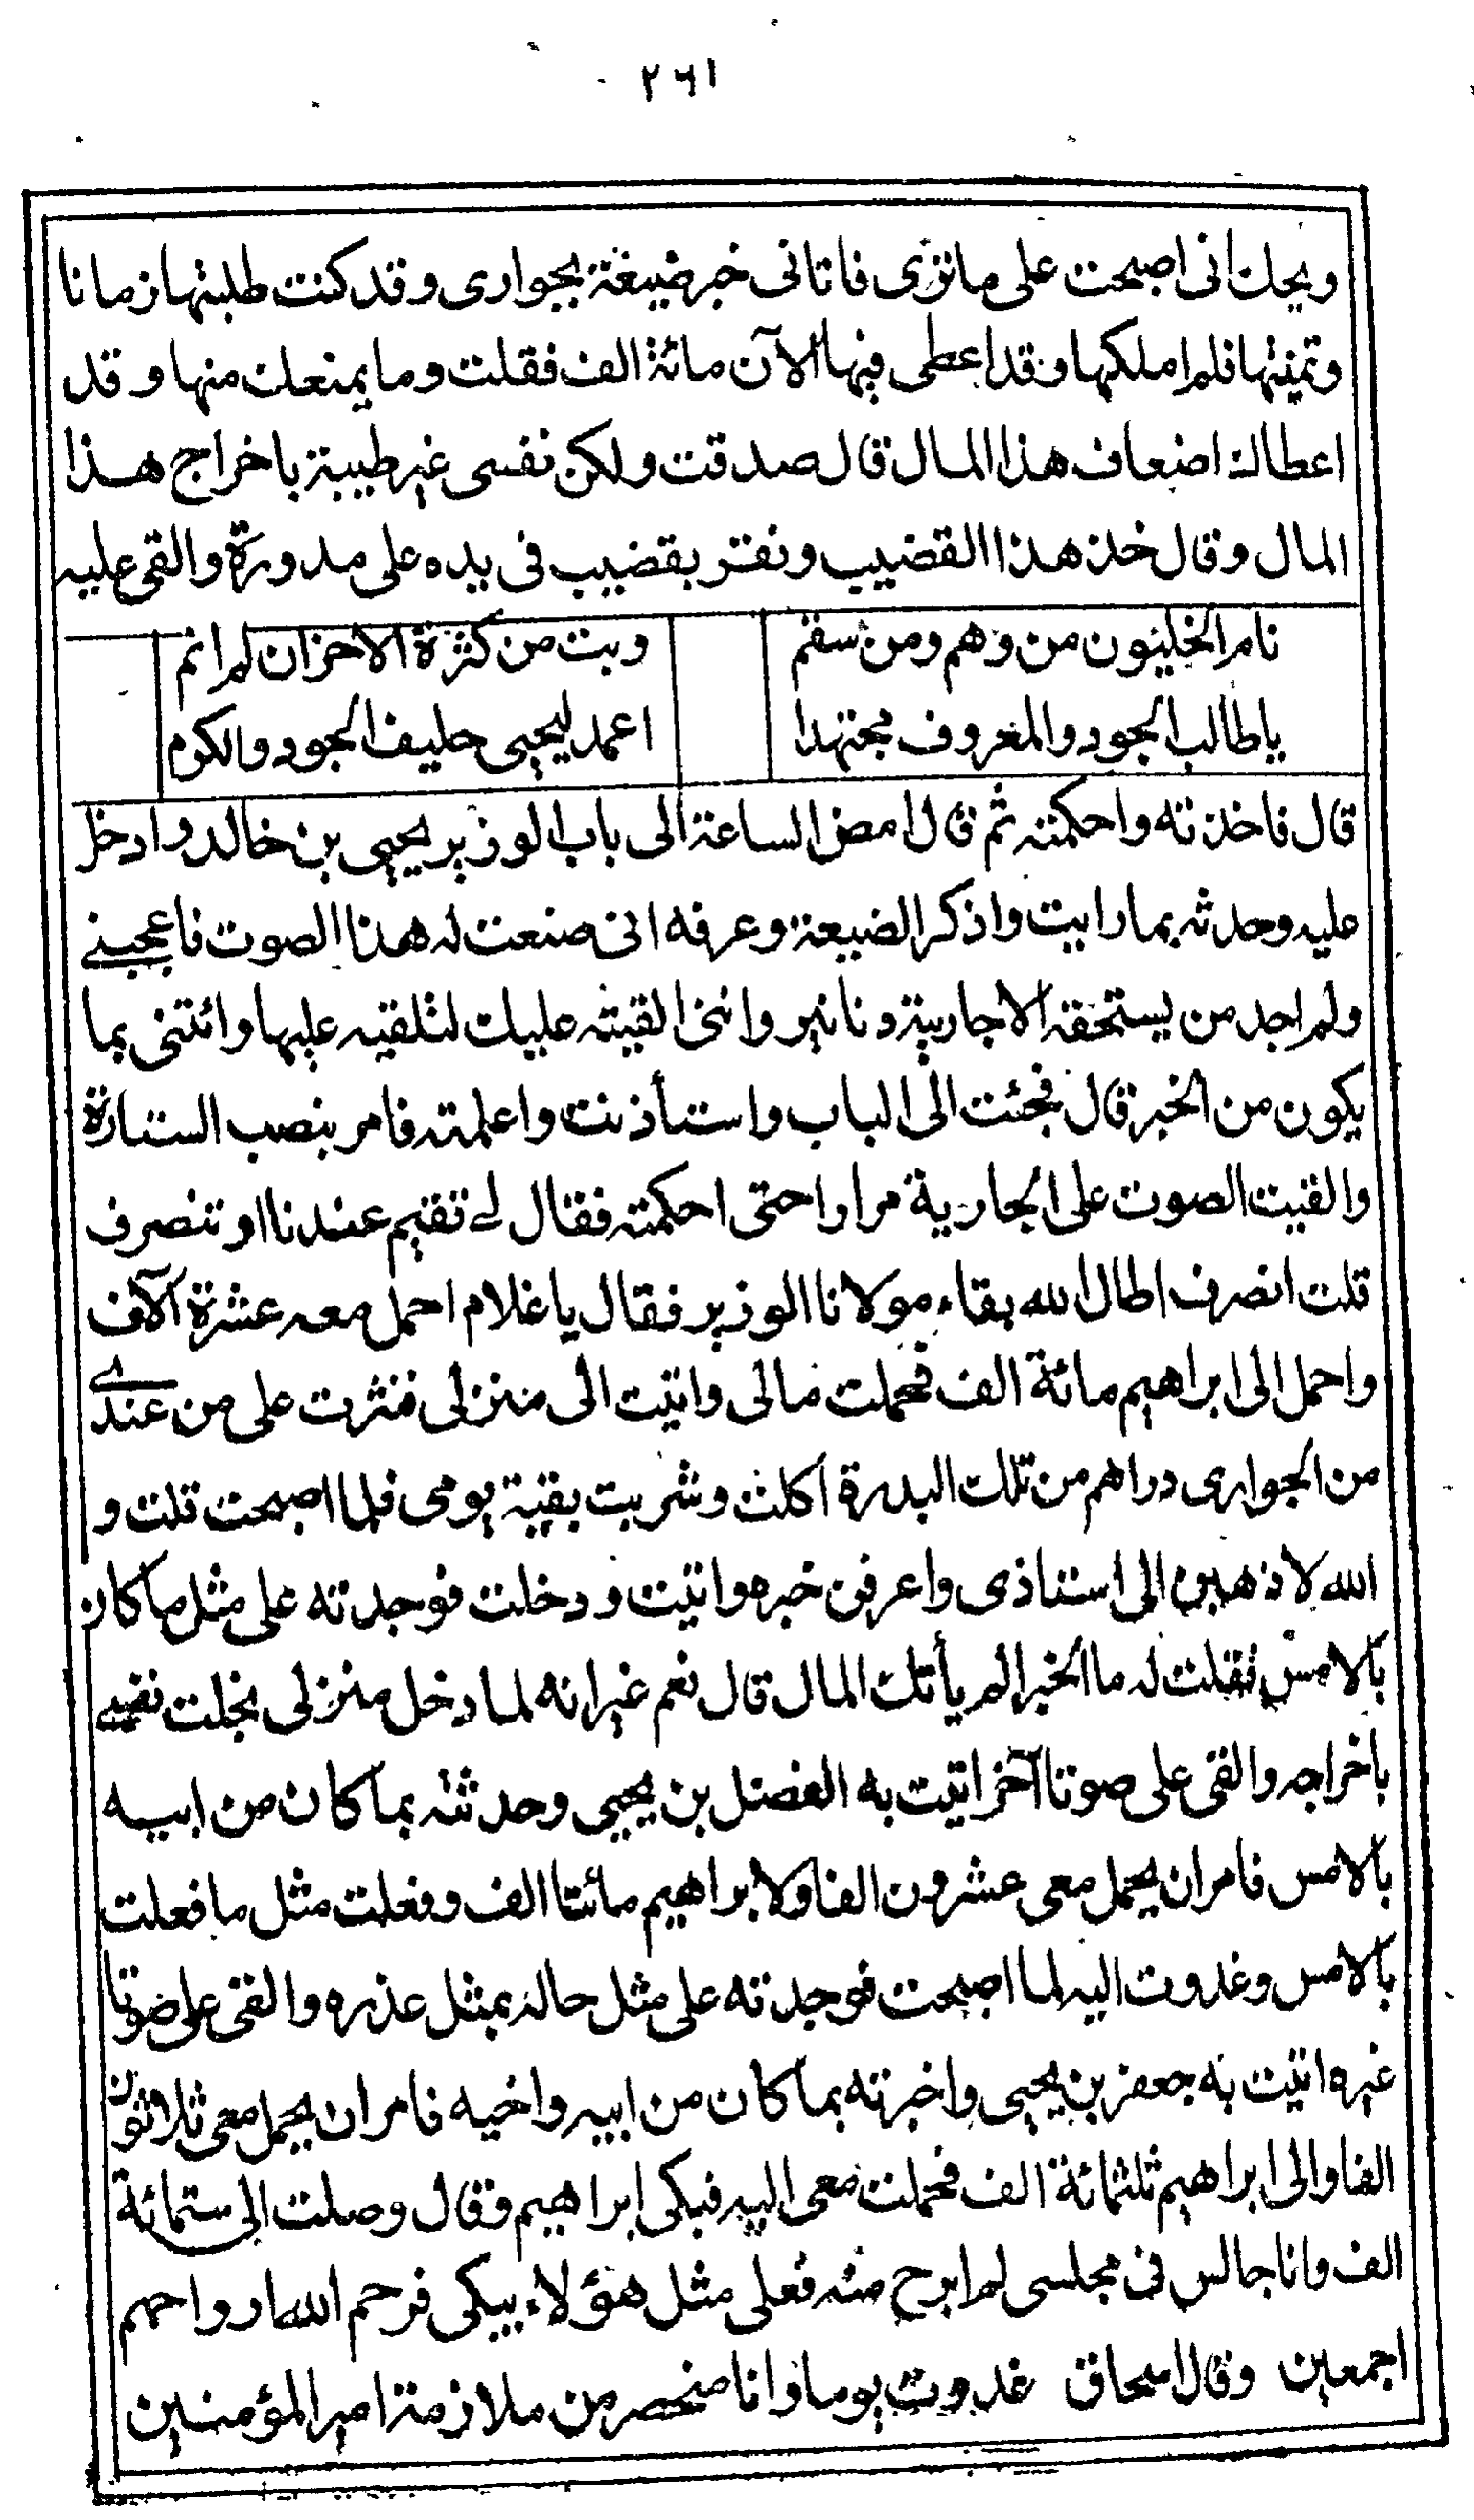 ٢٦١
ويحك انى اصبحت على ماترى فاتانى خبر ضيعة بجوارى وقد كنت طلبتها زمانا
وتمنيتها فلم املكها وقد اعطى فيها الآن مائة الف فقلت وما يمنعك منها وقد
اعطاك اضعاف هذا المال قال صدقت ولكن نفسى غير طيبة باخراج هذا
المال وقال خذ هذا القضيب ونقر بقضيب فى يده على مدورة والقى عليه
نام الخليون من وهم ومن سقم وبت من كثرة الاحزان لم انم
يا طالب الجود والمعروف مجتهدا اعمد ليحيى حليف الجود والكرم
قال فاخذته واحكمته ثم قال امض الساعة الى باب الوزير يحيى بن خالد وادخل
عليه وحدثه بما رايت واذكر الضيعة وعرفه انى صنعت له هذا الصوت فاعجبنے
ولم اجد من يستحقه الا جارية دنانير وانى القيته عليك لتلقيه عليها وائتنى بما
يكون من الخبر قال فجئت الى الباب واستأذنت واعلمته فامر بنصب الستارة
والقيت الصوت على الجارية مرارا حتى احكمته فقال لے تقيم عندنا او تنصرف
قلت انصرف اطال الله بقاء مولانا الوزير فقال يا غلام احمل معه عشرة آلاف
واحمل الى ابراهيم مائة الف فحملت مالى واتيت الى منزلى فنثرت على من عندے
من الجوارى دراهم من تلك البدرة اكلت وشربت بقية يومى فلما اصبحت قلت و
الله لاذهبن الى استاذى واعرفن خبره واتيت ودخلت فوجدته على مثل ما كان
بالامس فقلت له ما الخبر الم يأتك المال قال نعم غير انه لما دخل منزلى بخلت نفسے
باخراجه والقى على صوتا آخر اتيت به الفضل بن يحيى وحدثته بما كان من ابيه
بالامس فامر ان يحمل معى عشرون الفا ولابراهيم مائتا الف وفعلت مثل ما فعلت
بالامس وغدوت اليه لما اصبحت فوجدته على مثل حاله بمثل عذره والقى على صوتا
غيره اتيت به جعفر بن يحيى واخبرته بما كان من ابيه واخيه فامر ان يحمل معى ثلاثون
الفا والى ابراهيم ثلثمائة الف فحملت معى اليه فبكى ابراهيم وقال وصلت الى ستمائة
الف وانا جالس فى مجلسى لم ابرح منه فعلى مثل هؤلاء يبكى فرحم الله ارواحهم
اجمعين وقال اسحاق غدوت يوما وانا منحصر من ملازمة امير المؤمنين